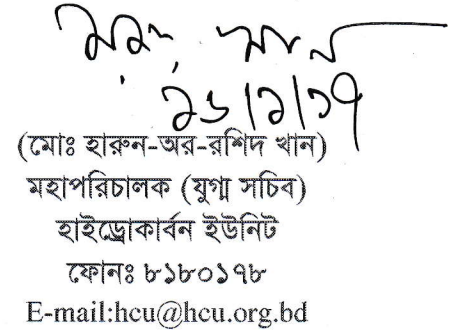 ২৬/২/১৭
(মোঃ হারুন-অর-রশিদ খান)
মহাপরিচালক (যুগ্ম সচিব)
হাইড্রোকার্বন ইউনিট
ফোনঃ ৮১৮০১৭৮
E-mail:hcu@hcu.org.bd